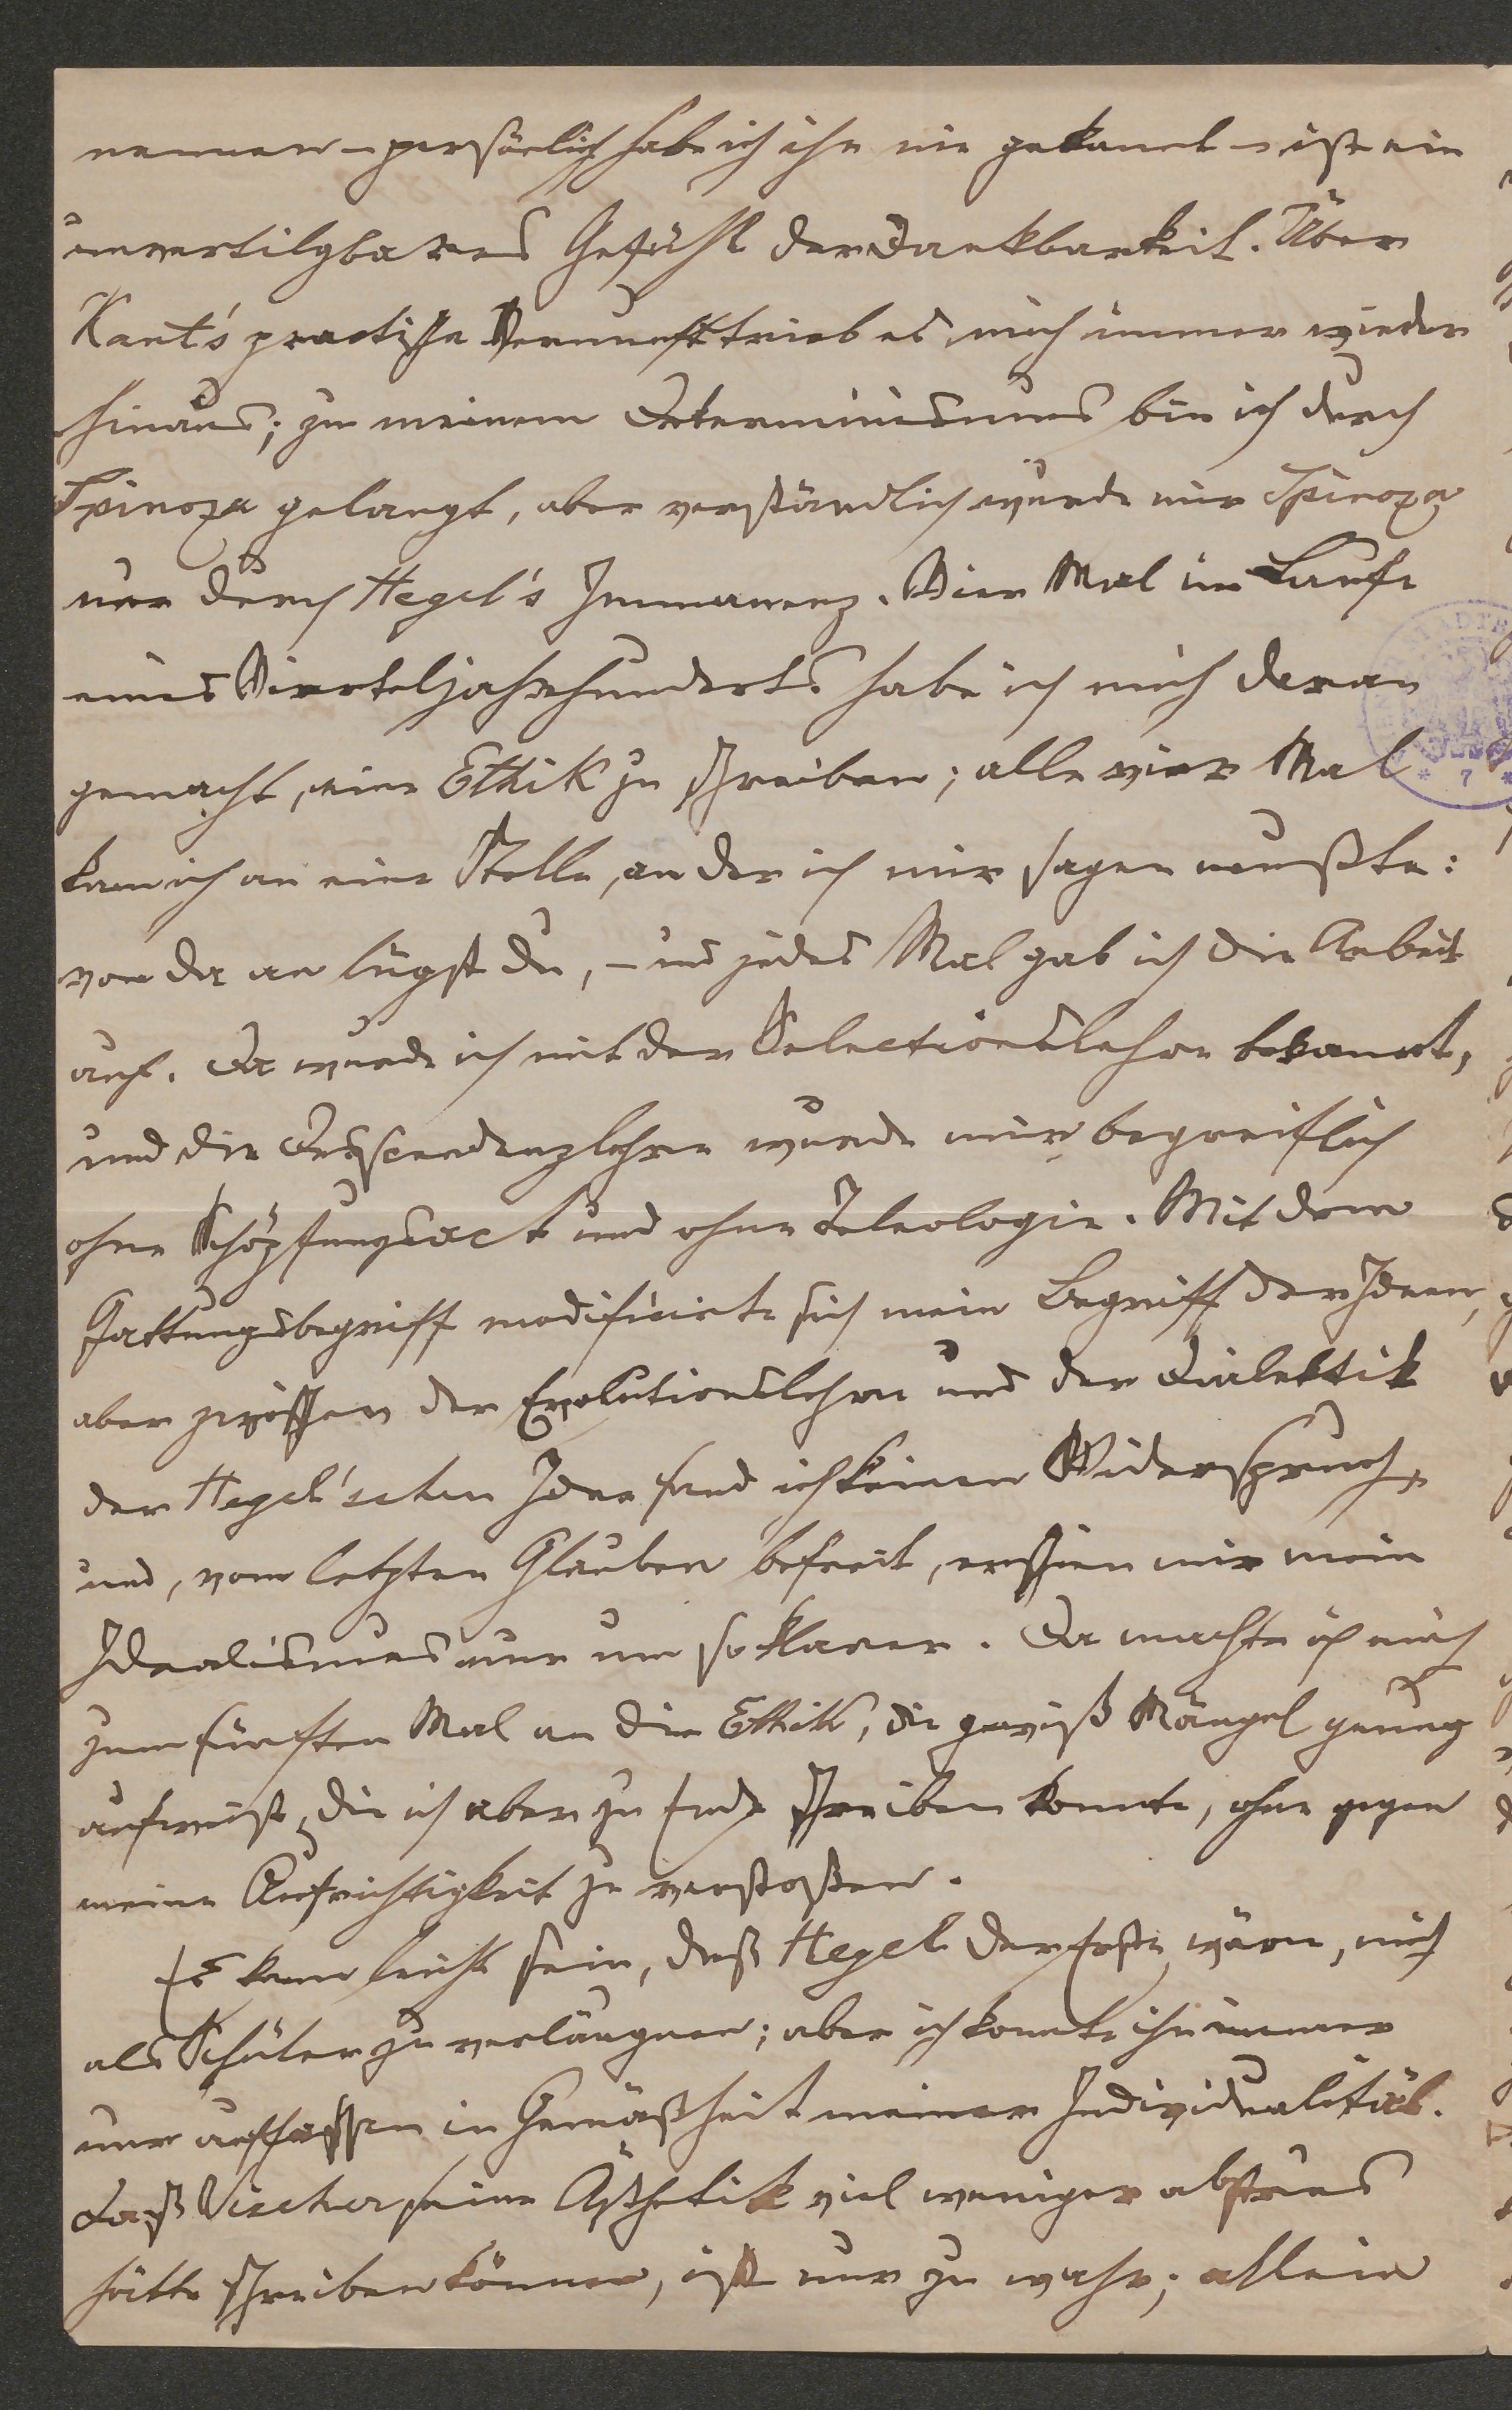 nennen – persönlich habe ich ihn nie gekannt – ist ein
unvertilgbares Gefühl der Dankbarkeit. Über
Kant's practische Vernunft trieb es mich immer wieder
hinaus; zu meinem Determinismus bin ich durch
Spinoza gelangt, aber verständlich wurde mir Spinoza
nur durch Hegel's Immanenz. Vier Mal im Laufe
eines Vierteljahrhunderts habe ich mich daran
gemacht, eine Ethik zu schreiben; alle vier Mal
kam ich an eine Stelle, an der ich mir sagen mußte:
von da an lügst du, – und jedes Mal gab ich die Arbeit
auf. Da wurde ich mit der Selectionslehre bekannt,
und die Descendenzlehre wurde mir begreiflich
ohne Schöpfungsact und ohne Teleologie. Mit dem
Gattungsbegriff modificirte sich mein Begriff der Ideen,
aber zwischen der Evolutionslehre und der Dialektik
der Hegel'schen Idee fand ich keinen Widerspruch,
und, vom letzten Glauben befreit, erschien mir mein
Idealismus nur um so klarer. Da machte ich mich
zum fünften Mal an die Ethik, die gewiß Mängel genug
aufweist, die ich aber zu Ende schreiben konnte, ohne gegen
meine Aufrichtigkeit zu verstoßen.
Es kann leicht sein, daß Hegel der Erste wäre, mich
als Schüler zu verläugnen; aber ich konnte ihn immer
nur auffassen in Gemäßheit meiner Individualität.
Daß Vischer seine Ästhetik viel weniger abstrus
hätte schreiben können, ist nur zu wahr; allein
* 7 *